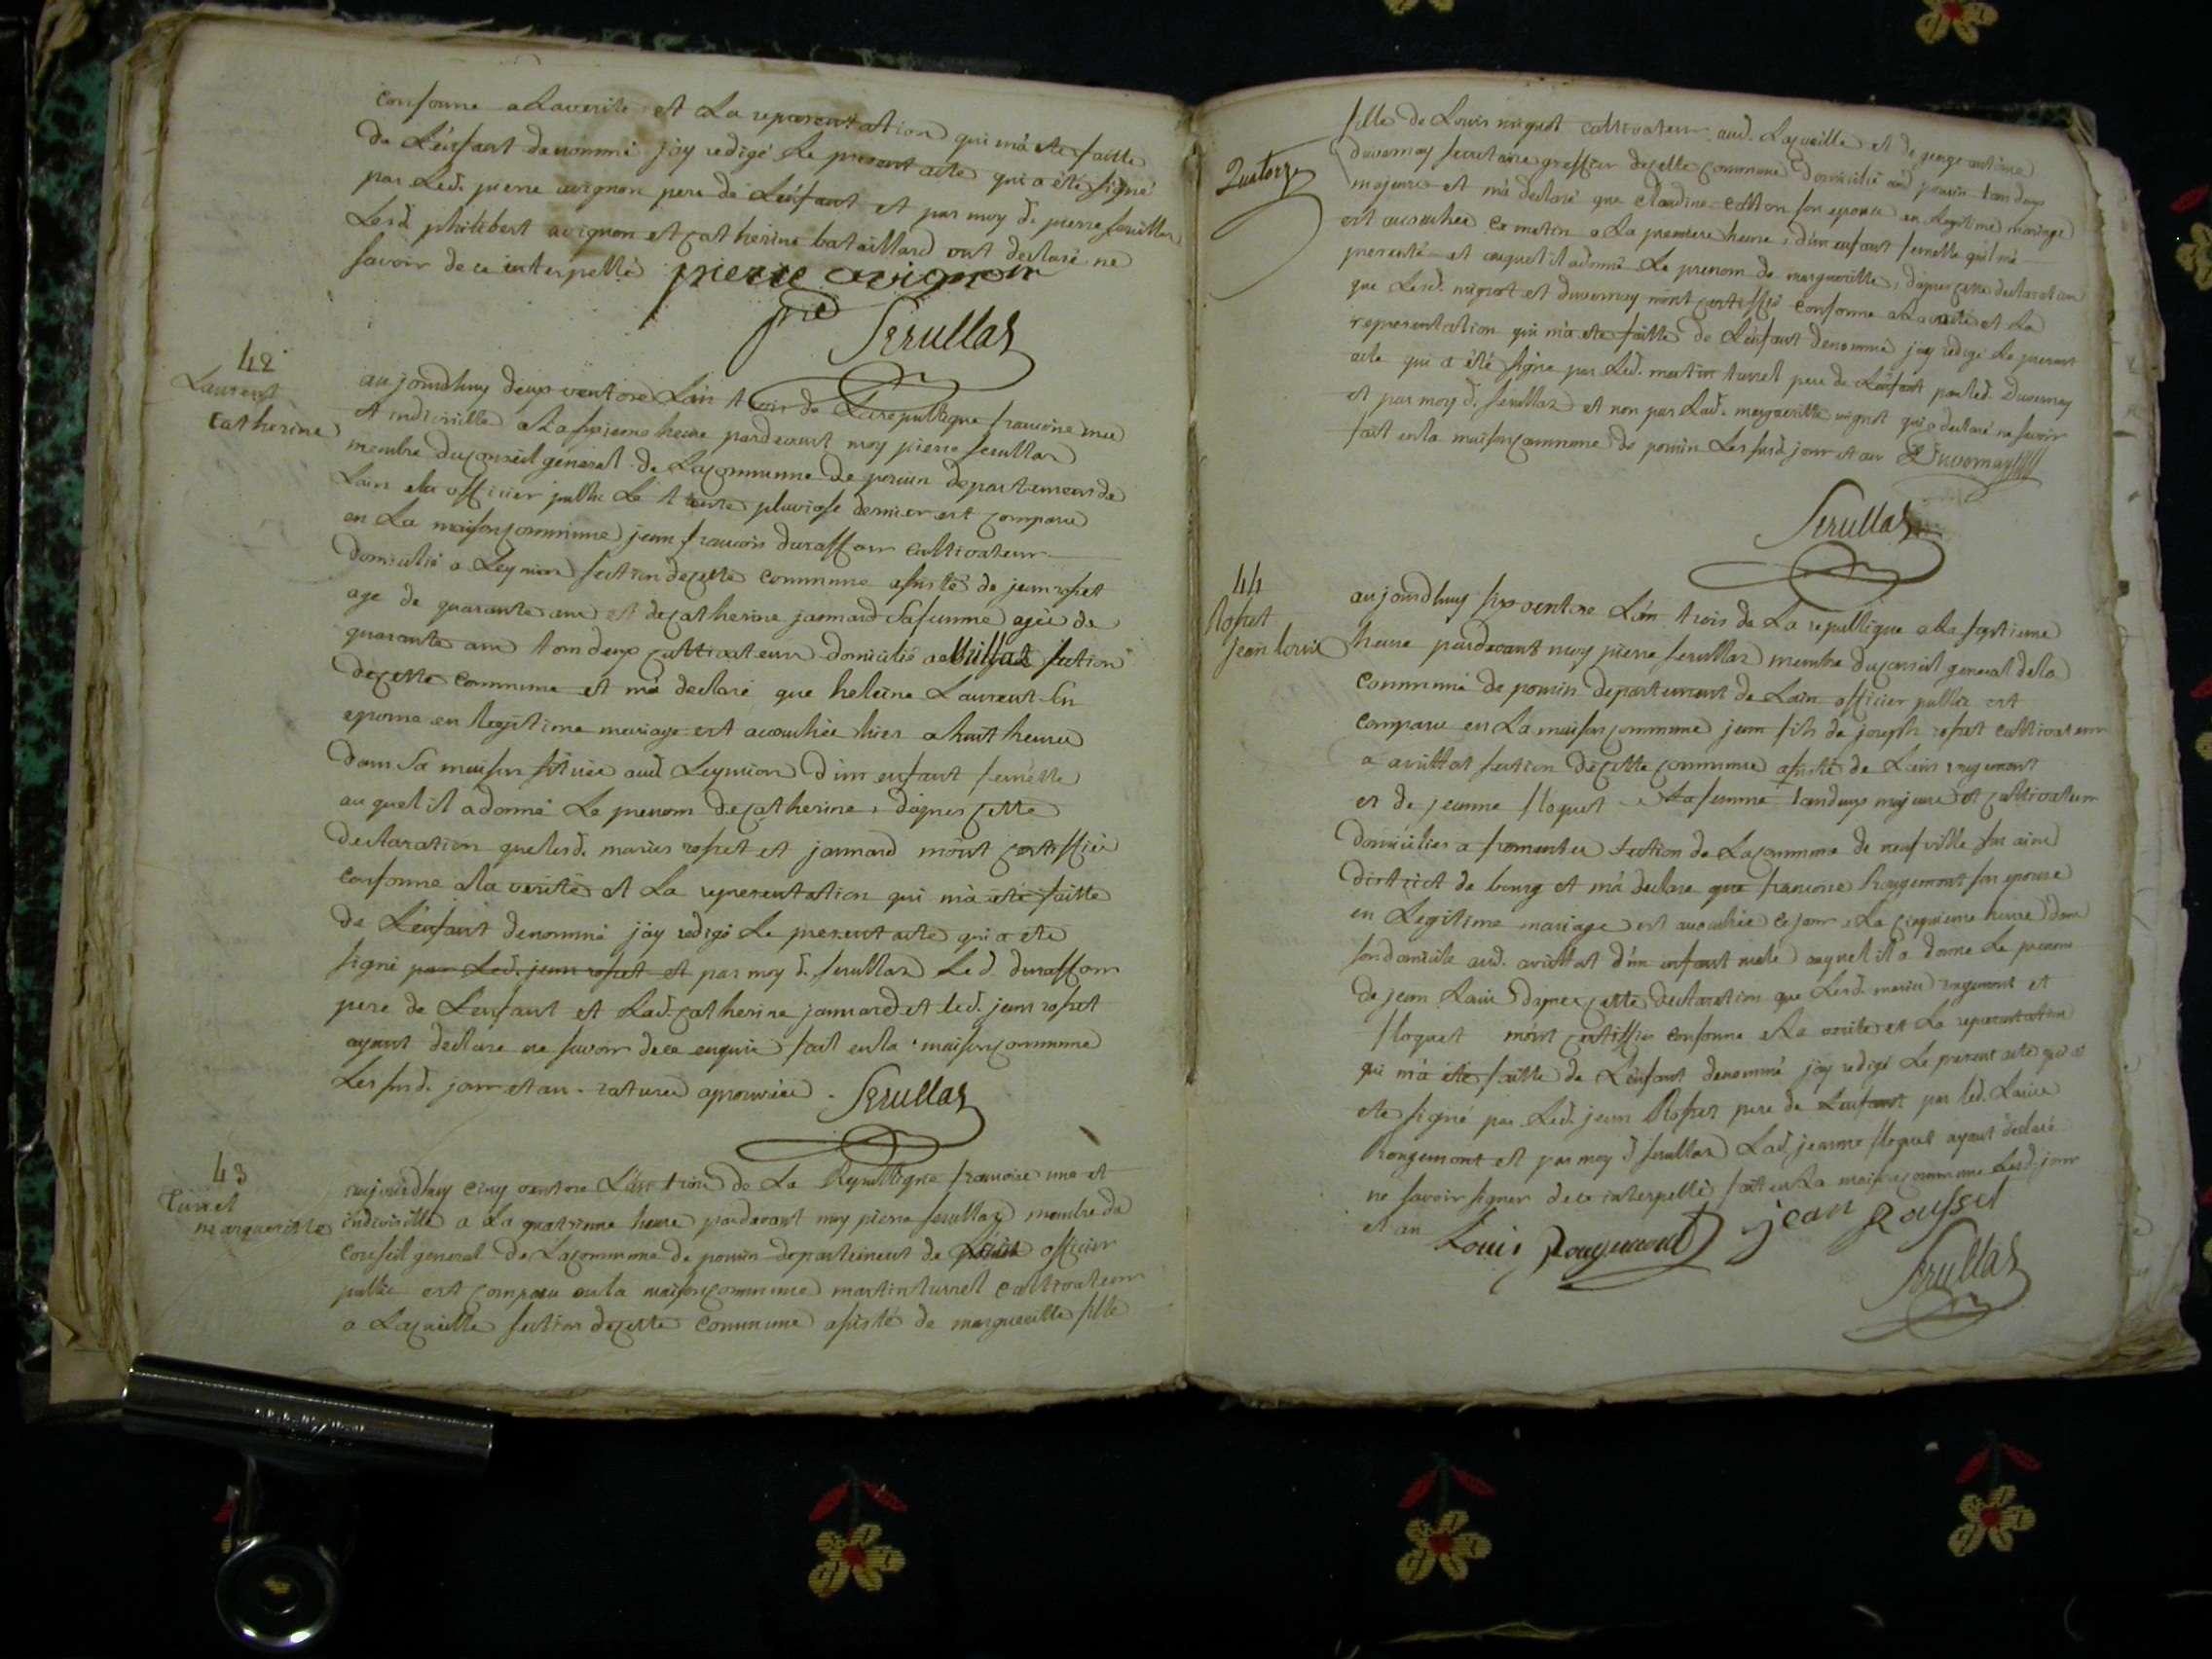 conforme a la verite et la representation qui m'a ete faitte
de l'enfant denommé j'ay redigé le present acte qui a été signé
par led. pierre avignon pere de l'enfant et par moy d. pierre serullaz
lesd. philibert avignon et catherine bataillard ont declaré ne
savoir de ce interpellé pierre avignon
Serullaz
42
Laurent
Catherine
aujourdhuy deux ventose l'an trois de la republique francoise une
et indivisible a la sixieme heure pardevant moy pierre serullaz
membre du conseil general de la commune de poncin departement de
lain elu officier public le trente pluviose dernier est comparu
en la maison commune jean francois duraffour cultivateur
domicilié a Leymion section de cette commune asisté de jean rosset
age de quarante ans et de catherine janmard sa femme agée de
quarante ans tous deux cultivateurs domicilié a section
de cette commune et m'a declaré que heleine Laurent son
epouse en legitime mariage est accouchée hier a huit heures
dans sa maison située aud. Leymion d'un enfant femelle
auquel il a donné le prenom de catherine, d'apres cette
declaration que lesd. mariés rosset et janmard m'ont certiffiée
conforme a la verité et la representation qui m'a eté faitte
de l'enfant denommé j'ay redigé le present acte qui a ete
signé par led. jean rosset et par moy d. serullaz le d. duraffour
pere de l'enfant et lad. catherine janmard et led. jean rosset
ayant declare ne savoir de ce enquis fait en la maison commune
les susd. jour et an . ratures aprouvées . Serullaz
43
Turrel
marguerithe
aujourdhuy cinq ventose l'an trois de la Republique francoise une et
indivisible a la quatrieme heure pardevant moy pierre serullaz membre du
conseil general de la commune de poncin departement de l'ain officier
public est comparu en la maison commune martin turrel cultivateur
a Lacueille section de cette commune asisté de marguerille fille
Quatorze
fille de Louis mignot cultivateur aud. Lacueille et de antoine
duvernay secretaire greffier de cette commune domicilié aud poncin tous deux
majeures et m'a declaré que claudine cotton son epouse en legitime mariage
est accouchée ce matin a la premiere heure, d'un enfant femelle qu'il m'a
presenté et auquel il a donné le prenom de marguerille, d'apres cette declaration
que lesd. mignot et duvernay m'ont certiffié conforme a la verité et la
representation qui m'a ete faitte de l'enfant denommé j'ay redigé le present
acte qui a été signé par led. martin turrel pere de l'enfant par led. Duvernay
et par moy d. serullaz et non par lad. marguerille mignot qui a declaré ne savoir
fait en la maison commune de poncin les susd. jour et an Duvernay
Serullaz
44
Rosset
jean louis
aujourdhuy six ventose l'an trois de la republique a la septieme
heure pardevant moy pierre serullaz membre du conseil general de la
commune de poncin departement de l'ain officier public est
comparu en la maison commune jean fils de joseph rosset cultivateur
a avittat section de cette commune asisté de Louis rougemont
et de jeanne floquet sa femme tous deux majeurs et cultivateurs
domiciliés a fromentes section de la commune de neufville sur aine
district de bourg et m'a declare que francoise Rougemont son epouse
en legitime mariage est accouchée ce jour a la cinquieme heure dans
son domicile aud. avittat d'un enfant male auquel il a donné le prenom
de jean Louis d'apres cette declaration que lesd. mariés rougemont et
floquet m'ont certiffiée conforme a la verité et la representation
qui m'a ete faitte de l'enfant denommé j'ay redigé le present acte qui a
ete signé par led. jean Rosset pere de l'enfant par led. Louis
Rougemont et par moy d serullaz lad. jeanne floquet ayant declaré
ne savoir signer de ce interpellé fait en la maison commune lesd. jour
et an Louis Rougemont jean Rousset
Serullaz